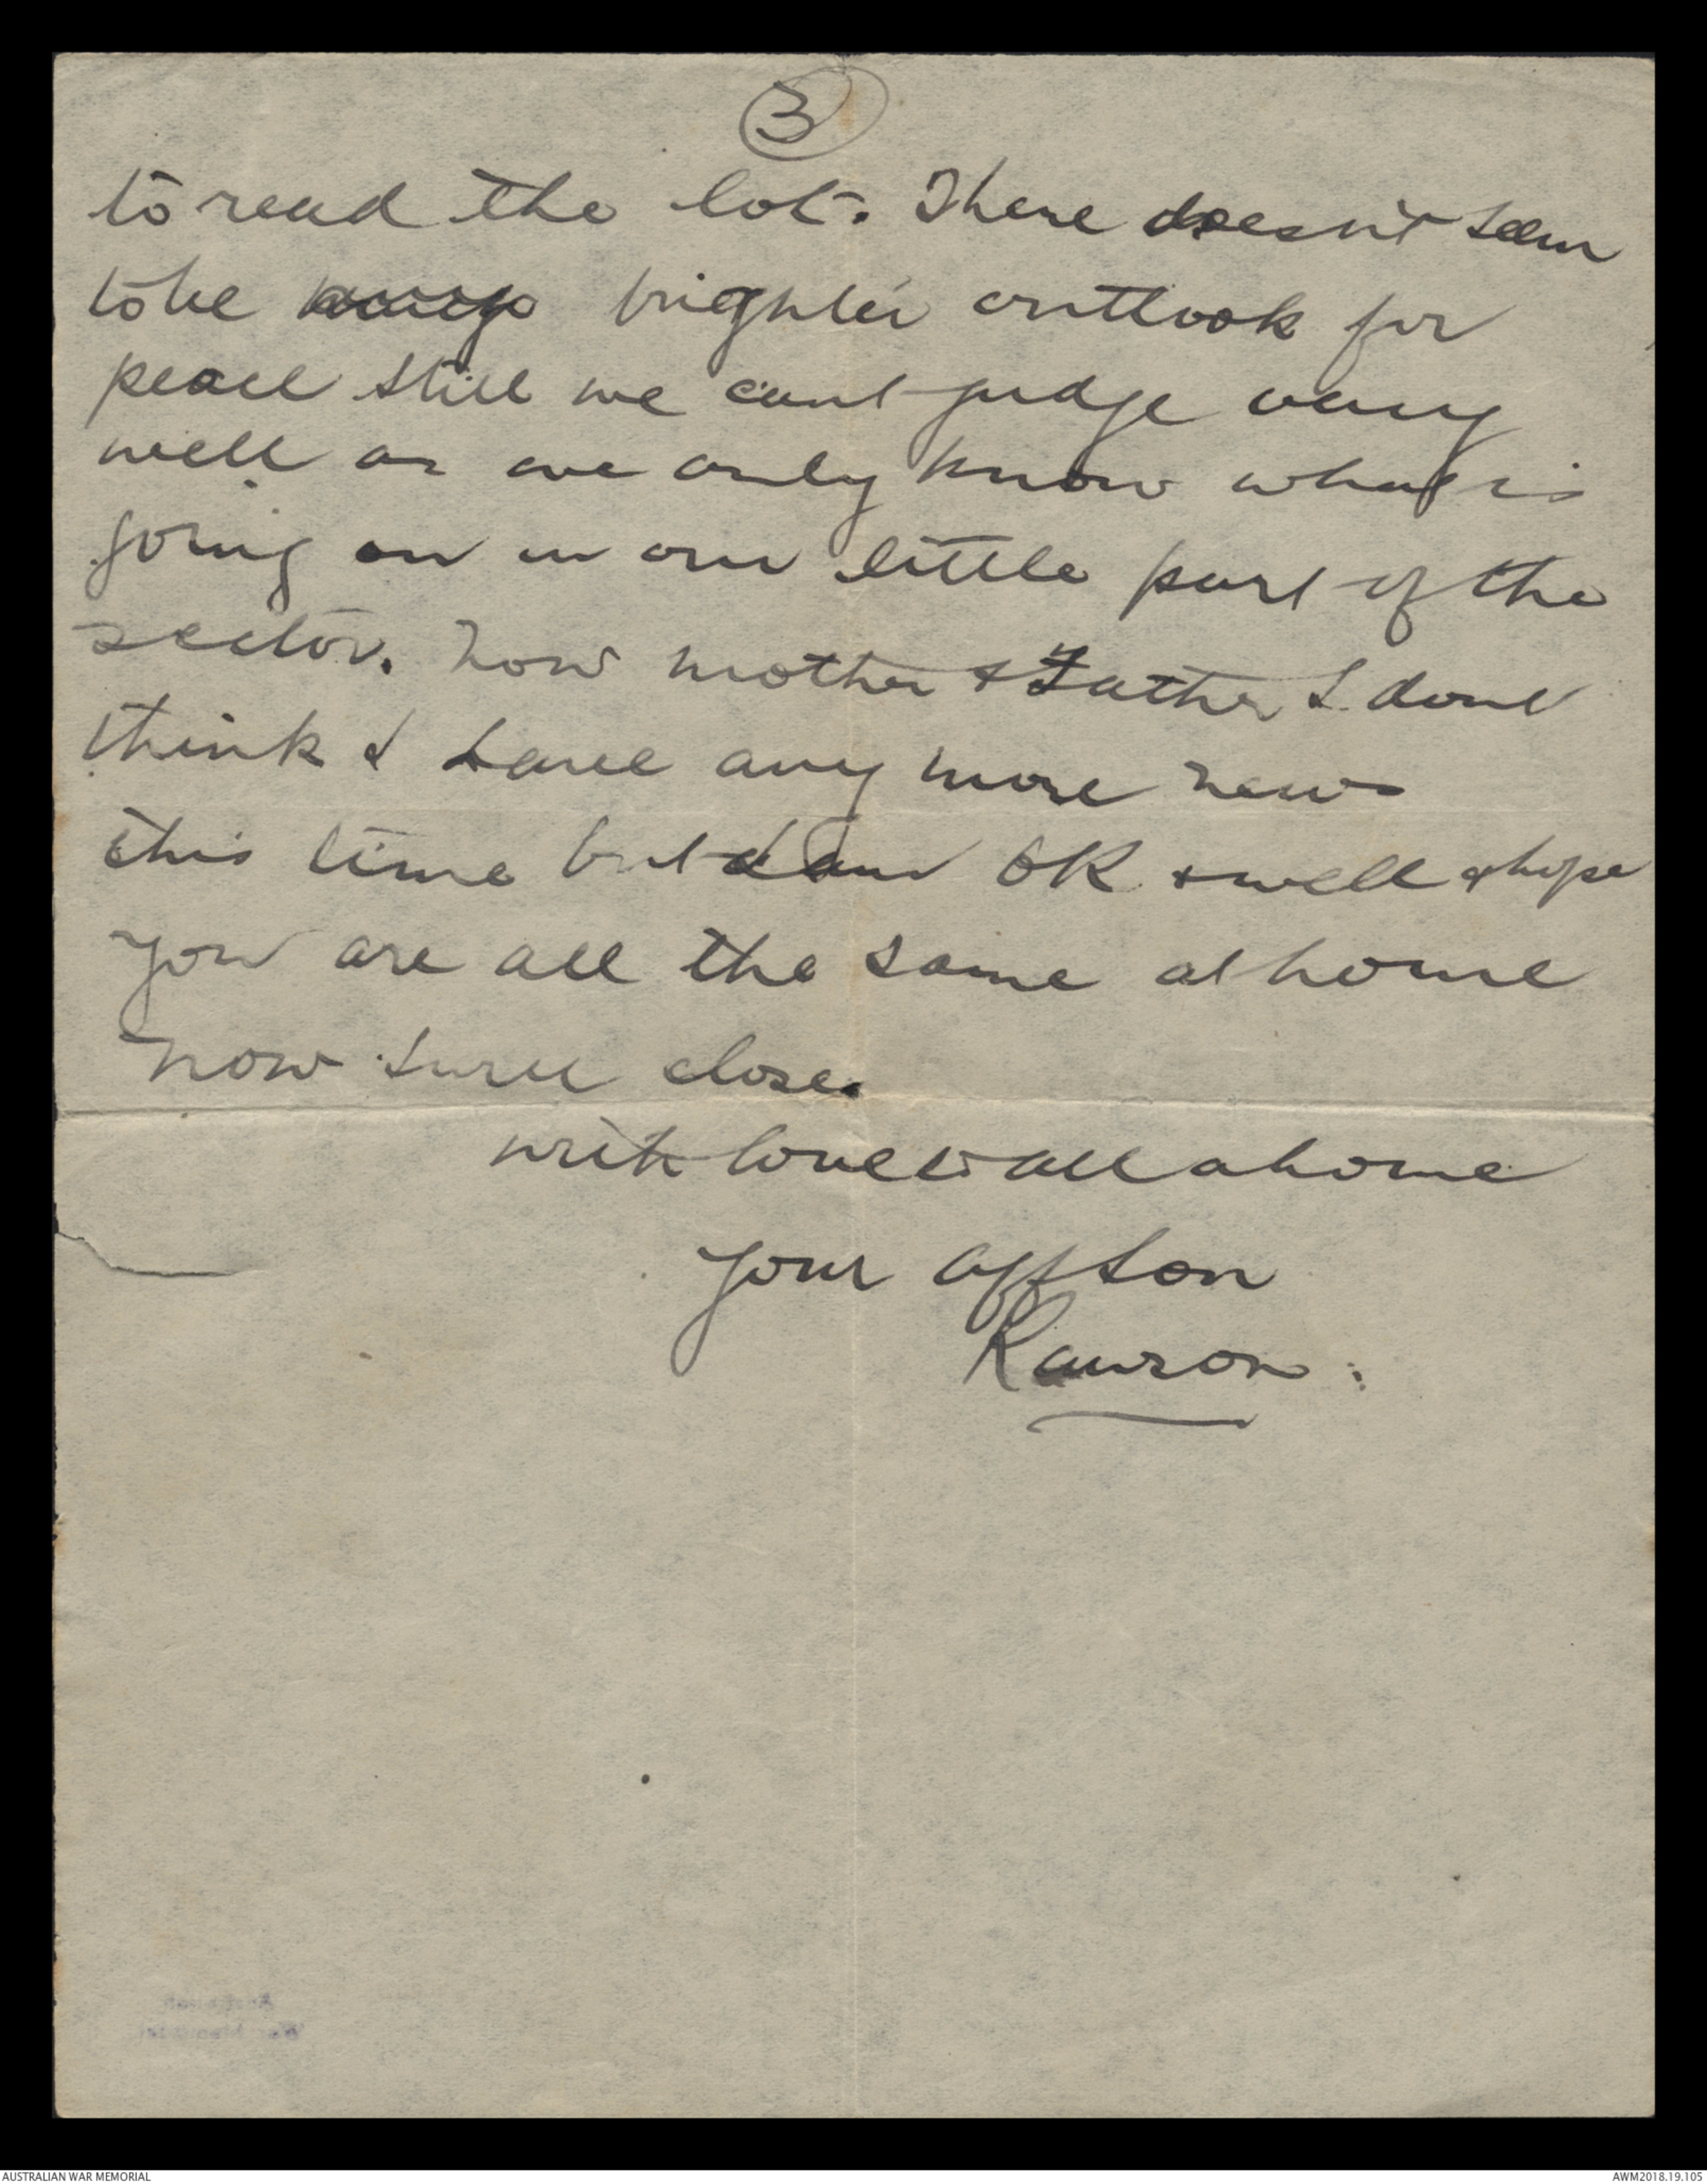 3
to read the lot. There doesn't seem
to be brighter outlook for
peace still we cant judge very
well as we only know what is
going on in our little part of the
sector. Now mother & Father I dont
think I have any more news
this time but I am OK & well & hope
you are all the same at home
Now I will close.
with love to all a home
Your aff son
Rawson.
AUSTRALIAN WAR MEMORIAL
AWM2018.19.105